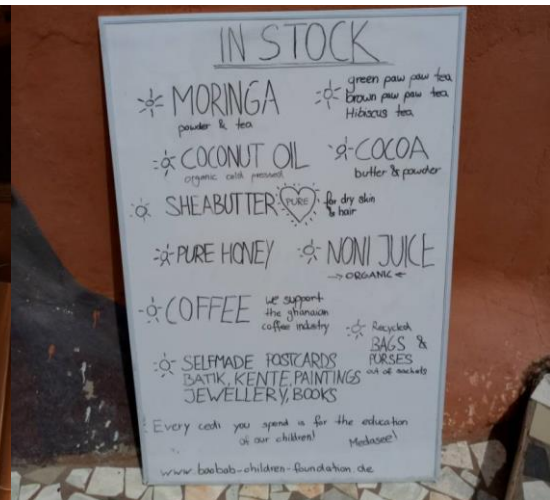 IN STOCK
MORINGA
powder & tea
green paw paw tea
brown paw paw tea
Hibiscus tea
COCONUT OIL
organic cold pressed
COCOA
butter & powder
SHEABUTTER PURE for dry skin
& hair
PURE HONEY
NONI JUICE
ORGANIC
COFFEE
we support
the ghanaian
coffee industry
Recycled
BAGS &
PURSES
out of sachets
SELFMADE POSTCARDS
BATIK, KENTE, PAINTINGS
JEWELLERY, BOOKS
Every cedi you spend is for the education
of our children!
Medaase!
www.baobab-children-foundation.de